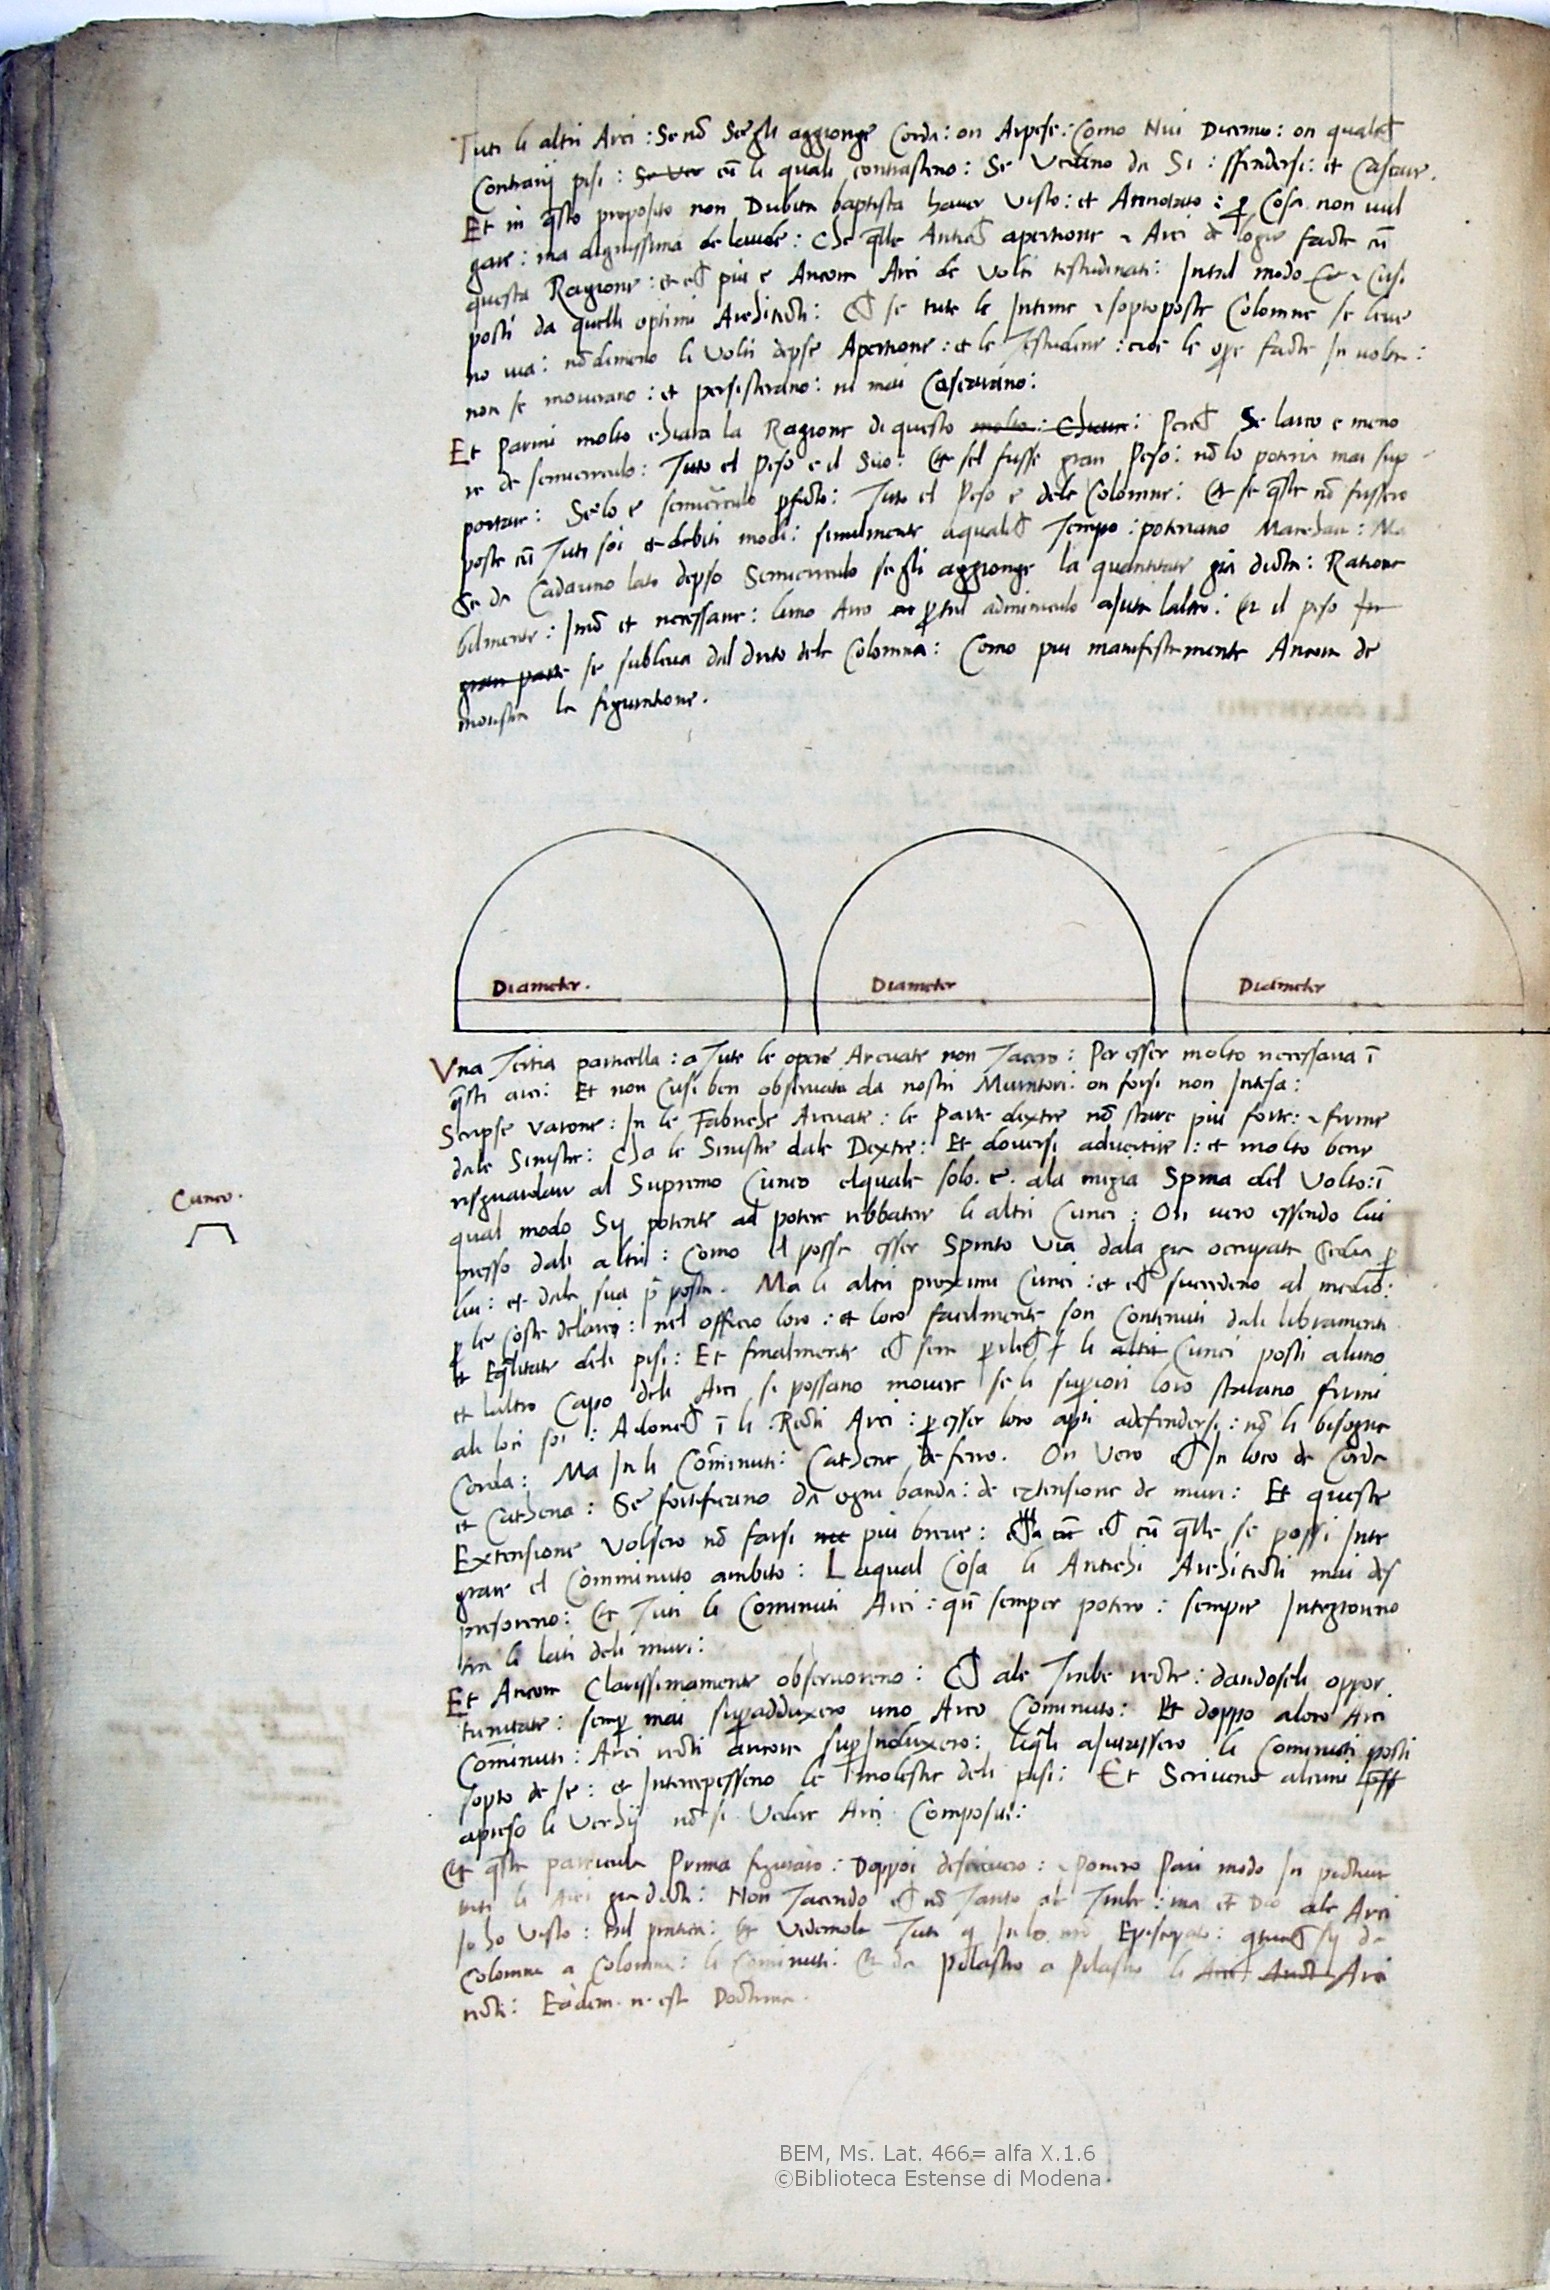 Tuti li altri Arci : Se nō Segli aggionge Corda : on Aipese : Como Nui Dicemo : on
Contrarij pesi : Se Ver cū li quali contrasteno : Se Vederno da Si : ffendersi : et Cascare .
Et in q̄sto proposito non Dubita baptista haver Visto : et Annotato : ꝑ Cosa non vul
gare : ma dignissima de laude : Che q̄lle apertione Arci de logie facte cū
questa Ragione : piu e Ancora Arci de Volti testudinati : Intal modo Cusi
posti da quelli optimi Architecti : se tute le Intime sopto poste Colomne se leve
no via : nōdimeno li Volti depse Apertione : et le Testudine : cioe le oꝑe facte In volta :
non se moverano : et persisterano : ni mai Cascarano :
Et Parmi molto chiara la Ragione di questo molto : Chiara : Se larco e meno
re de semicirculo : Tuto el Peso e il Suo : Et sel fusse gran Peso : nō lo poteria mai sup
portare : Selo e semicirculo ꝑfecto : Tuto el Peso e dele Colomne : Et se q̄ste nō fussero
poste cū Tuti soi et debiti modi : similmente Tempo : poteriano Manchar : Ma
Se da Cadauno lato depso Semicirculo segli aggionge la quantitate gia dicta : Ratione
bilmente : Imō et necessarie : luno Arco ꝑ tal adminiculo ajuta laltro : Et il peso in
gran parte se subleva dal drito dele Colomna : Como piu manifestamente Ancora de
monstra la figuratione .
Diameter .
Diameter
Diameter
Vna Tertia particella : a Tute le opere Arcuate non Tacero : Per esser molto necessaria ī
q̄sti arci : Et non Cusi ben observata da nostri Muratori : on forsi non Intesa :
Scripse Varone : In le Fabriche Arcuate : le Parte dextre nō stare piu forte : firme
dale Sinistre : Cha le Sinistre dale Dextre : Et doversi advertire : et molto bene
risguardar al Supremo Cuneo elquale solo . e . ala megia Spina del Volto : ī
Cuneo .
qual modo Sij potente ad potere rebbatere li altri Cunei : On vero essendo lui
presso dali altri : Como el posse esser Spinto Via dala gia occupate Sedia ꝑ
lui : et dala sua posta . Ma li altri proximi Cunei : succedeno al medio :
ꝑ le Coste delarci : nel officio loro : et loco facilmente son Contenuti dali libramenti
et Eq̄litate deli pesi : Et finalmente li altri Cunei posti aluno
et laltro Capo deli Arci si possano movere se li suꝑiori loro starano firmi
ali lori soi : ī li Recti Arci : ꝑ esser loro apti adefendersi : nō li bisogna
Corda : Ma In li Cōminuti : Cathene de ferro . On Vero In loco de Corda
et Cathena : Se fortificano da ogni banda : de extensione de muri : Et queste
Extensione Volsero nō farsi piu breve : cū q̄lle se possi Inte
grare el Comminuto ambito : Laqual Cosa li Antichi Architecti mai des
presoreno : Et Tuti li Cominuti Arci : semper potero : sempre Integroreno
tra li lati deli muri :
Et Ancora Clarissimamente observoreno : ale Trabe recte : dandoseli oppor
tunitate : mai suꝑadduxero uno Arco Cominuto : Et doppo aloro Arci
Cominuti : Arci recti ancora suꝑInduxero : ajutassero li Cominuti posti
sopto de se : et Intercepesseno le molestie deli pesi : Et Scriveno alcuni
apreso li Vechij nō si Vedere Arci Compositi :
Et q̄sta particula Prima figuraro : Doppoi descrivero : Ponero Pari modo In pictura
tuti li Arci gia dicti : Non Tacendo nō Tanto ale Trabe : ma Dio ale Arci
Io ho Visto : tal pratica : Et Vedemola Tuti Episcopato :
Colomna a Colomna : li Cominuti : Et da Pilastro a Pilastro li Arci
recti : Eadem . n . est Doctrina .
BEM, Ms. Lat. 466= alfa X.1.6
©Biblioteca Estense di Modena